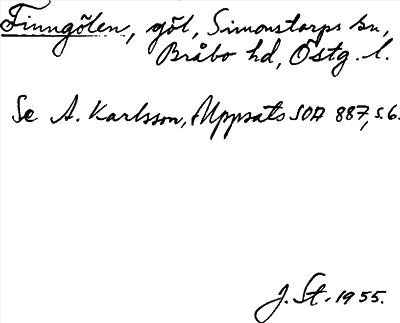 Finngölen, göl, Simonstorps sn,
Bråbo hd, Östg. l.
Se A. Karlsson, Uppsats SOA 887, s. 6.
J. St. 1955.